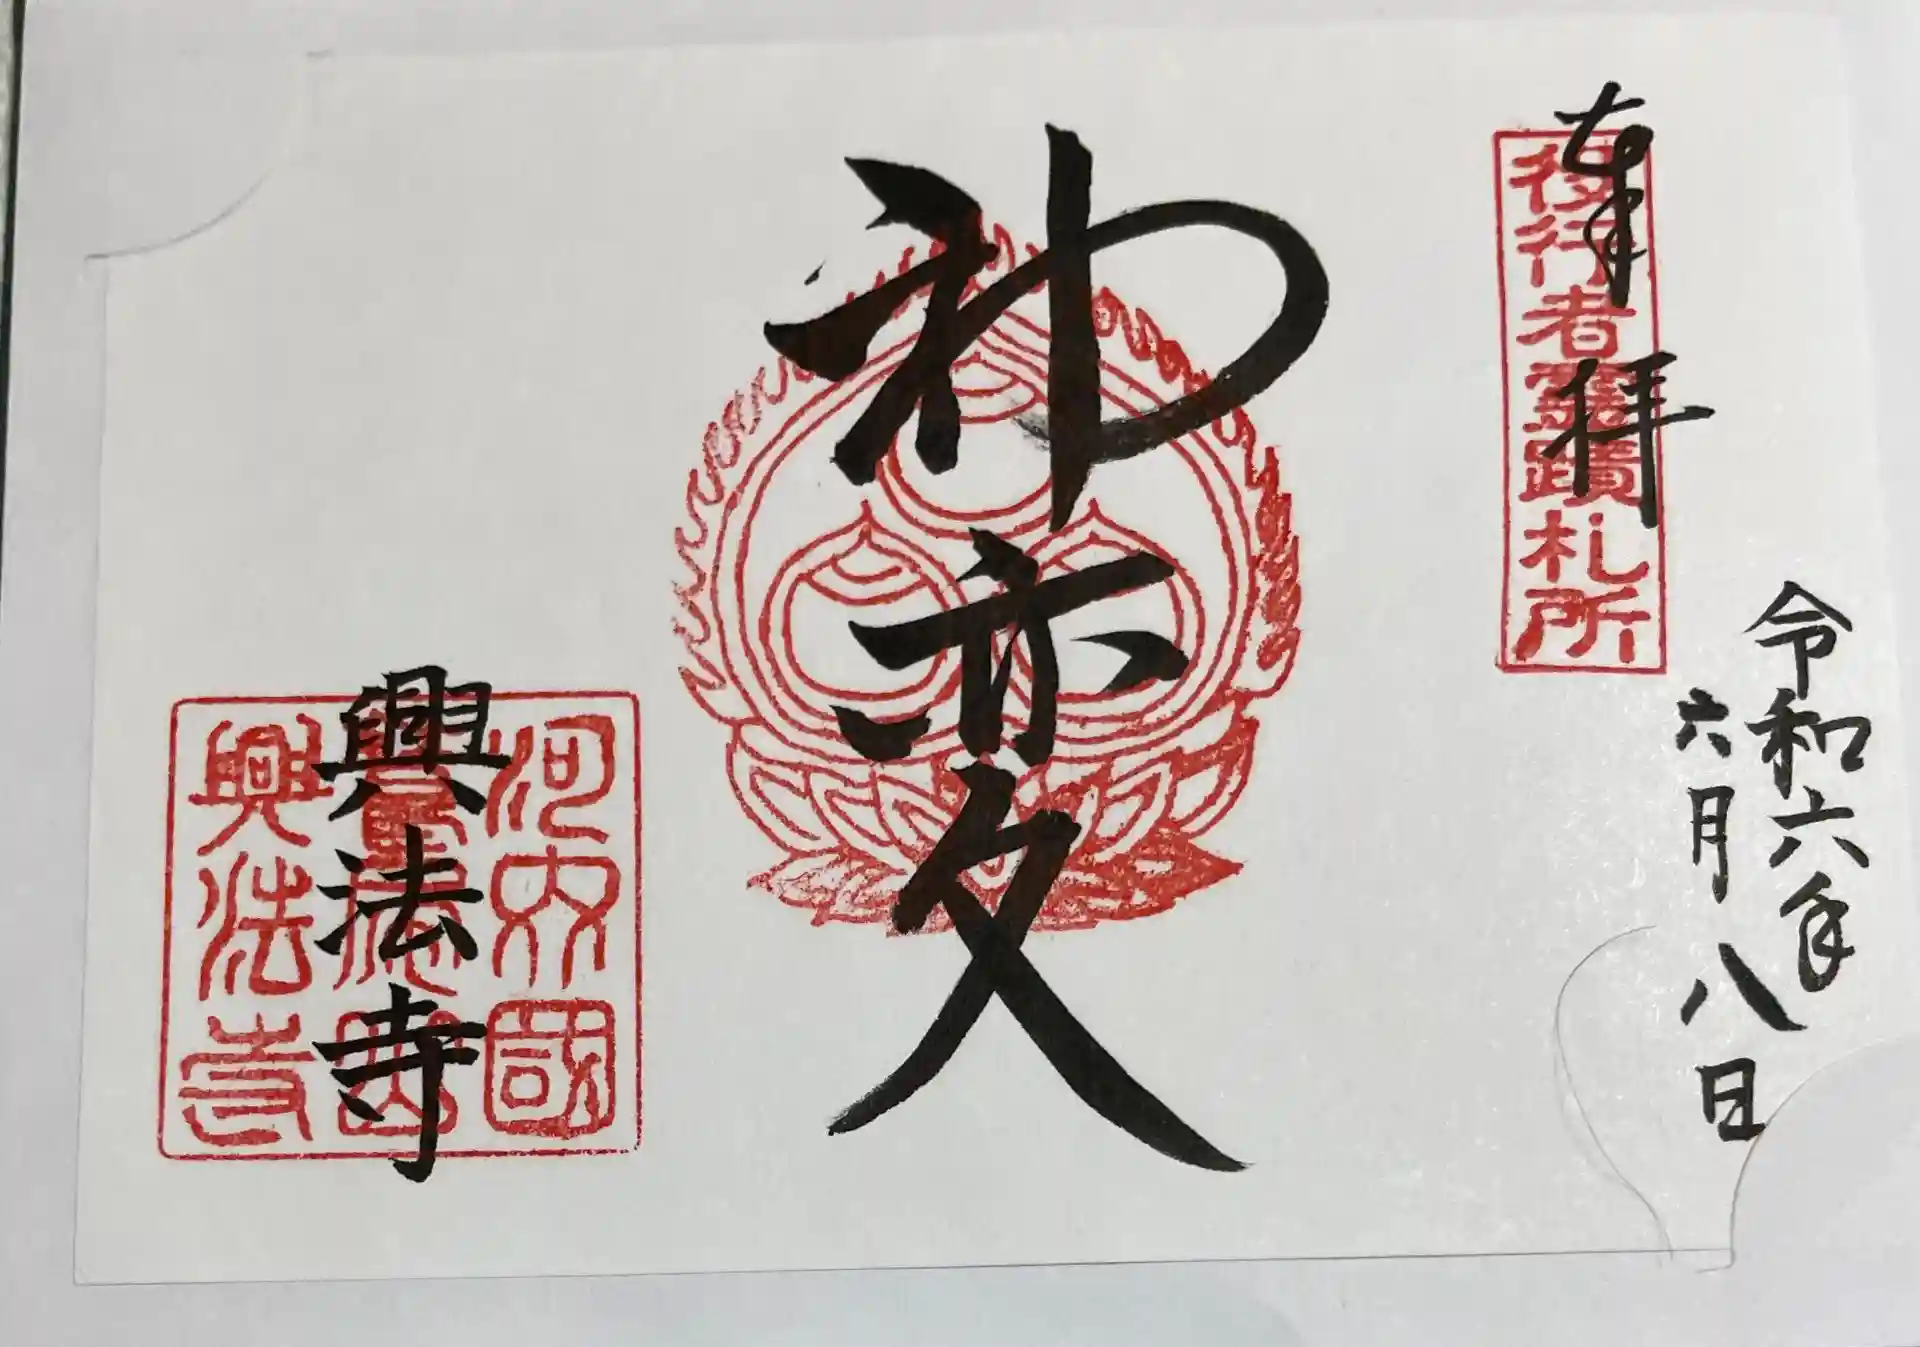 奉拝
役行者霊蹟札所
令和六年
六月八日
神変
河内國
興法寺
興法寺